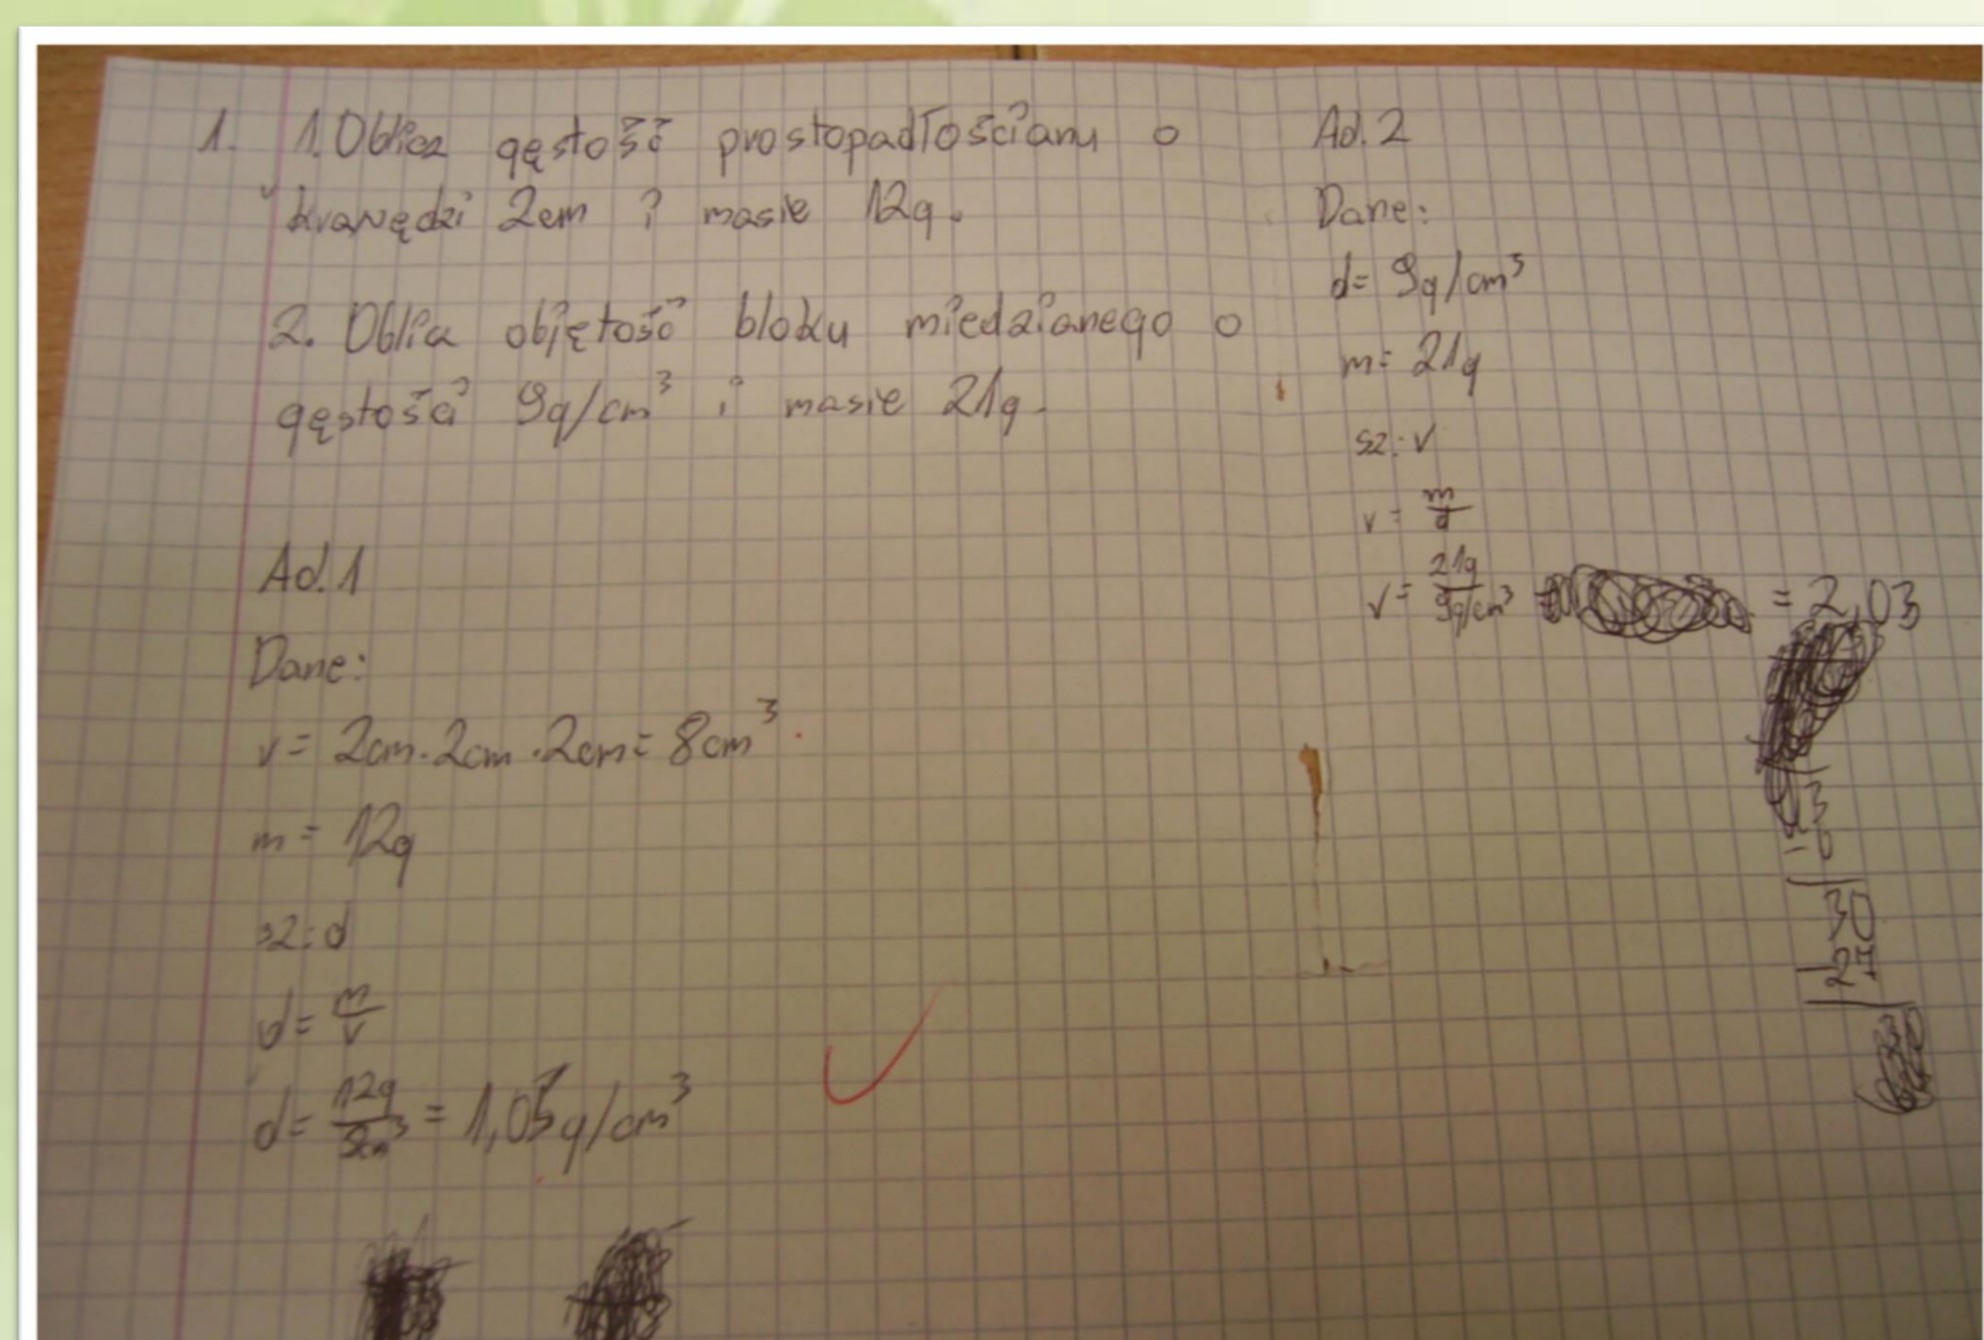 1. 1. Oblicz gęstość prostopadłościanu o
krawędzi 2cm i masie 12g.
2. Oblicz objętość bloku miedzianego o
gęstości 9g/cm³ i masie 21g.
Ad.1
Dane:
v = 2cm·2cm·2cm = 8cm³
m = 12g
sz: d
d = m/v
d = 12g/8cm³ = 1,05g/cm³
Ad.2
Dane:
d = 9g/cm³
m = 21g
sz: v
v = m/d
v = 21g/9g/cm³ = 2,03
3
-0
30
-27